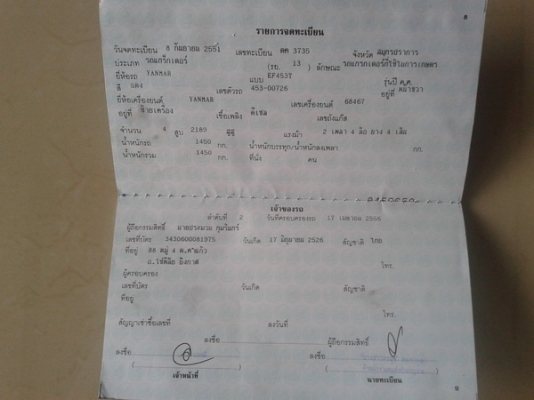 รายการจดทะเบียน
วันจดทะเบียน 8 กันยายน 2551 เลขทะเบียน ตค 3735 จังหวัด สมุทรปราการ
ประเภท รถแทรกเตอร์ (รย. 13 ) ลักษณะ รถแทรกเตอร์ที่ใช้ในการเกษตร
ยี่ห้อรถ YANMAR แบบ EF453T รุ่นปี ค.ศ.
สี แดง เลขตัวรถ 453-00726 อยู่ที่
ยี่ห้อเครื่องยนต์ YANMAR เลขเครื่องยนต์ 68467
อยู่ที่ เชื้อเพลิง ดีเซล เลขถังแก๊ส
จำนวน 4 สูบ 2189 ซีซี แรงม้า 2 เพลา 4 ล้อ ยาง 4 เส้น
น้ำหนักรถ 1450 กก. น้ำหนักบรรทุก/น้ำหนักลงเพลา กก.
น้ำหนักรวม 1450 กก. ที่นั่ง คน
เจ้าของรถ
ลำดับที่ 2 วันที่ครอบครองรถ 17 เมษายน 2556
ผู้ถือกรรมสิทธิ์
เลขที่บัตร 3430600081975 วันเกิด 17 มิถุนายน 2526 สัญชาติ ไทย
ที่อยู่ 86 หมู่ 4
โทร.
ผู้ครอบครอง
เลขที่บัตร วันเกิด สัญชาติ
ที่อยู่
โทร.
สัญญาเช่าซื้อเลขที่ ลงวันที่
ลงชื่อ ผู้ถือกรรมสิทธิ์
ลงชื่อ ลงชื่อ
เจ้าหน้าที่ นายทะเบียน